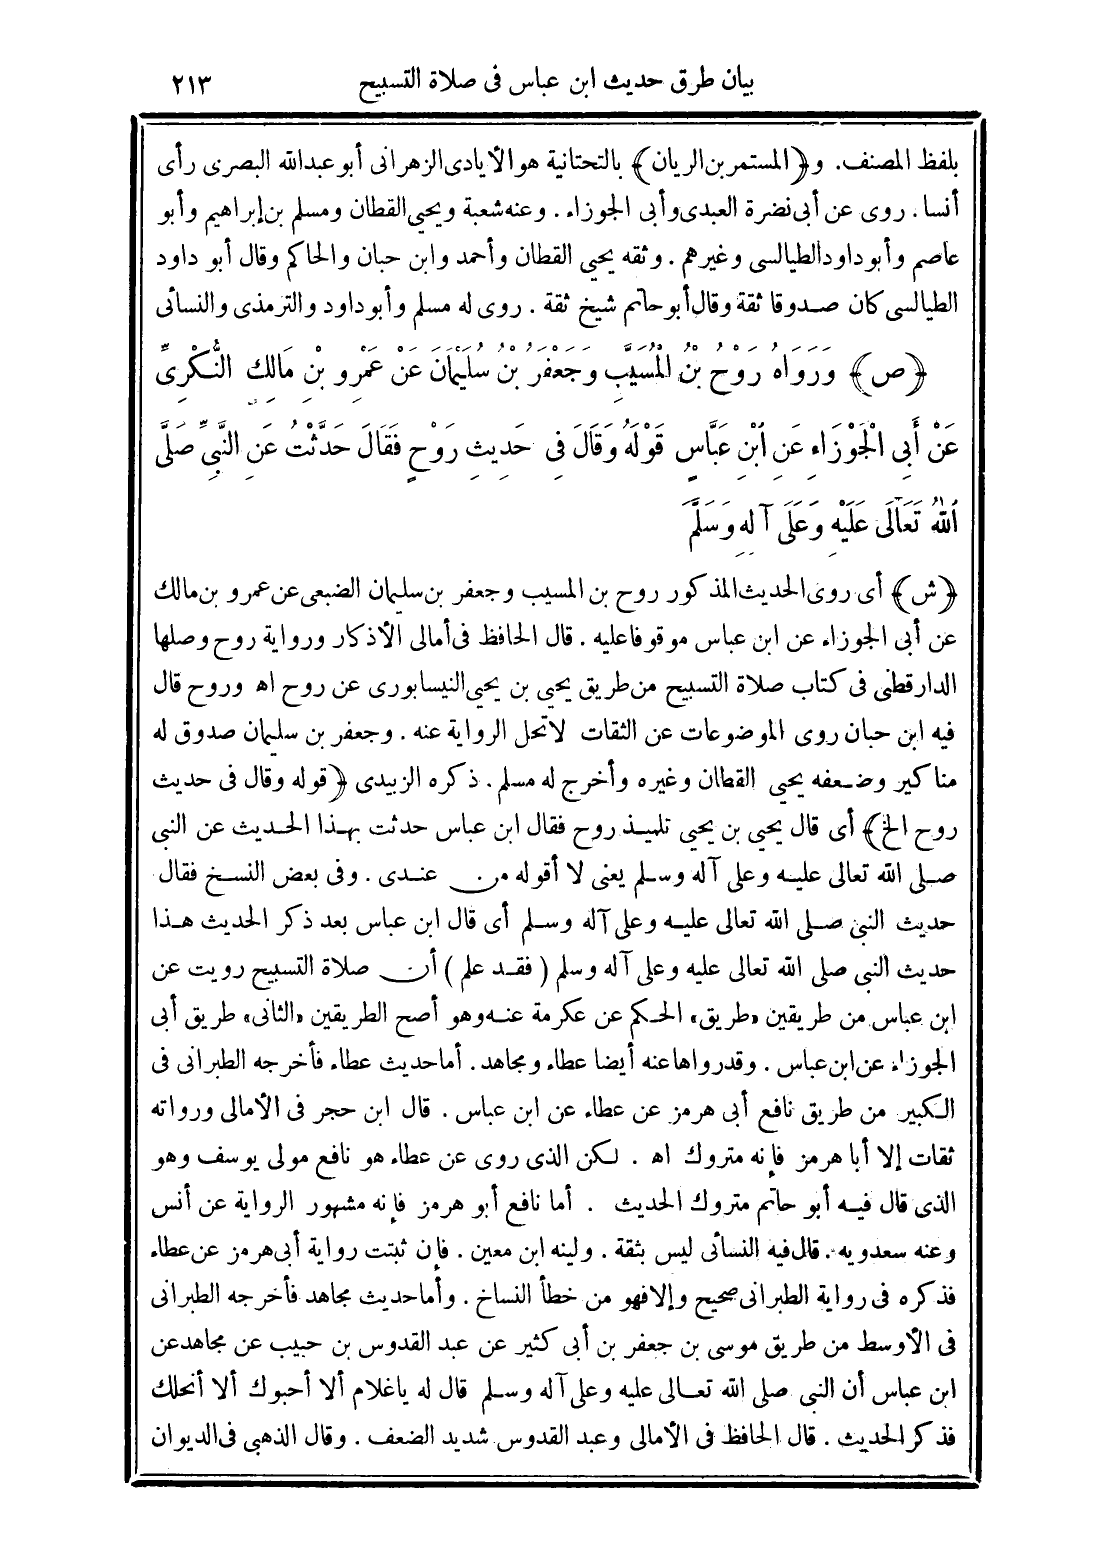 بيان طرق حديث ابن عباس فى صلاة التسبيح ٢١٣
بلفظ المصنف. و﴿المستمر بن الريان﴾ بالتحتانية هو الأيادى الزهرانى أبو عبدالله البصرى رأى
أنسا. روى عن أبى نضرة العبدى وأبى الجوزاء. وعنه شعبة ويحيى القطان ومسلم بن إبراهيم وأبو
عاصم وأبو داود الطيالسى وغيرهم. وثقه يحيى القطان وأحمد وابن حبان والحاكم وقال أبو داود
الطيالسى كان صدوقا ثقة وقال أبو حاتم شيخ ثقة. روى له مسلم وأبو داود والترمذى والنسائى
﴿ص﴾ وَرَوَاهُ رَوْحُ بْنُ الْمُسَيَّبِ وَجَعْفَرُ بْنُ سُلَيْمَانَ عَنْ عَمْرِو بْنِ مَالِكٍ النُّكْرِىِّ
عَنْ أَبِى الْجَوْزَاءِ عَنِ ابْنِ عَبَّاسٍ قَوْلَهُ وَقَالَ فِى حَدِيثِ رَوْحٍ فَقَالَ حَدَّثْتُ عَنِ النَّبِىِّ صَلَّى
اللهُ تَعَالَى عَلَيْهِ وَعَلَى آلِهِ وَسَلَّمَ
﴿ش﴾ أى روى الحديث المذكور روح بن المسيب وجعفر بن سليمان الضبعى عن عمرو بن مالك
عن أبى الجوزاء عن ابن عباس موقوفا عليه. قال الحافظ فى أمالى الأذكار ورواية روح وصلها
الدارقطنى فى كتاب صلاة التسبيح من طريق يحيى بن يحيى النيسابورى عن روح اه وروح قال
فيه ابن حبان روى الموضوعات عن الثقات لا تحل الرواية عنه. وجعفر بن سليمان صدوق له
مناكير وضعفه يحيى القطان وغيره وأخرج له مسلم. ذكره الزبيدى ﴿قوله وقال فى حديث
روح الخ﴾ أى قال يحيى بن يحيى تلميذ روح فقال ابن عباس حدثت بهذا الحديث عن النبى
صلى الله تعالى عليه وعلى آله وسلم يعنى لا أقوله من عندى. وفى بعض النسخ فقال
حديث النبى صلى الله تعالى عليه وعلى آله وسلم أى قال ابن عباس بعد ذكر الحديث هذا
حديث النبى صلى الله تعالى عليه وعلى آله وسلم (فقد علم) أن صلاة التسبيح رويت عن
ابن عباس من طريقين «طريق» الحكم عن عكرمة عنه وهو أصح الطريقين «الثانى» طريق أبى
الجوزاء عن ابن عباس. وقد رواها عنه أيضا عطاء ومجاهد. أما حديث عطاء فأخرجه الطبرانى فى
الكبير من طريق نافع أبى هرمز عن عطاء عن ابن عباس. قال ابن حجر فى الأمالى ورواته
ثقات إلا أبا هرمز فإنه متروك اه. لكن الذى روى عن عطاء هو نافع مولى يوسف وهو
الذى قال فيه أبو حاتم متروك الحديث. أما نافع أبو هرمز فإنه مشهور الرواية عن أنس
وعنه سعدويه. قال فيه النسائى ليس بثقة. ولينه ابن معين. فإن ثبتت رواية أبى هرمز عن عطاء
فذكره فى رواية الطبرانى صحيح وإلا فهو من خطأ النساخ. وأما حديث مجاهد فأخرجه الطبرانى
فى الأوسط من طريق موسى بن جعفر بن أبى كثير عن عبد القدوس بن حبيب عن مجاهد عن
ابن عباس أن النبى صلى الله تعالى عليه وعلى آله وسلم قال له ياغلام ألا أحبوك ألا أنحلك
فذكر الحديث. قال الحافظ فى الأمالى وعبد القدوس شديد الضعف. وقال الذهبى فى الديوان